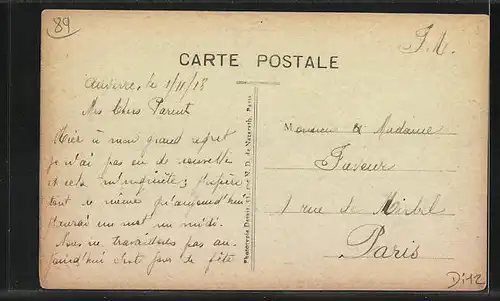 89
F. M.
CARTE POSTALE
le 1/11/18
Mes Chers Parent
Hier à mon grand regret
je n'ai pas eu de nouvelle
et cela m'inquiète; j'espère
tout de même qu'aujourd'hui
j'aurai un mot un midi.
Nous ne travaillons pas au-
jourd'hui c'est jour de fête
Phototypie Rue N. D. de Nazareth, Paris
Monsieur & Madame
1 rue de
Paris
D:12